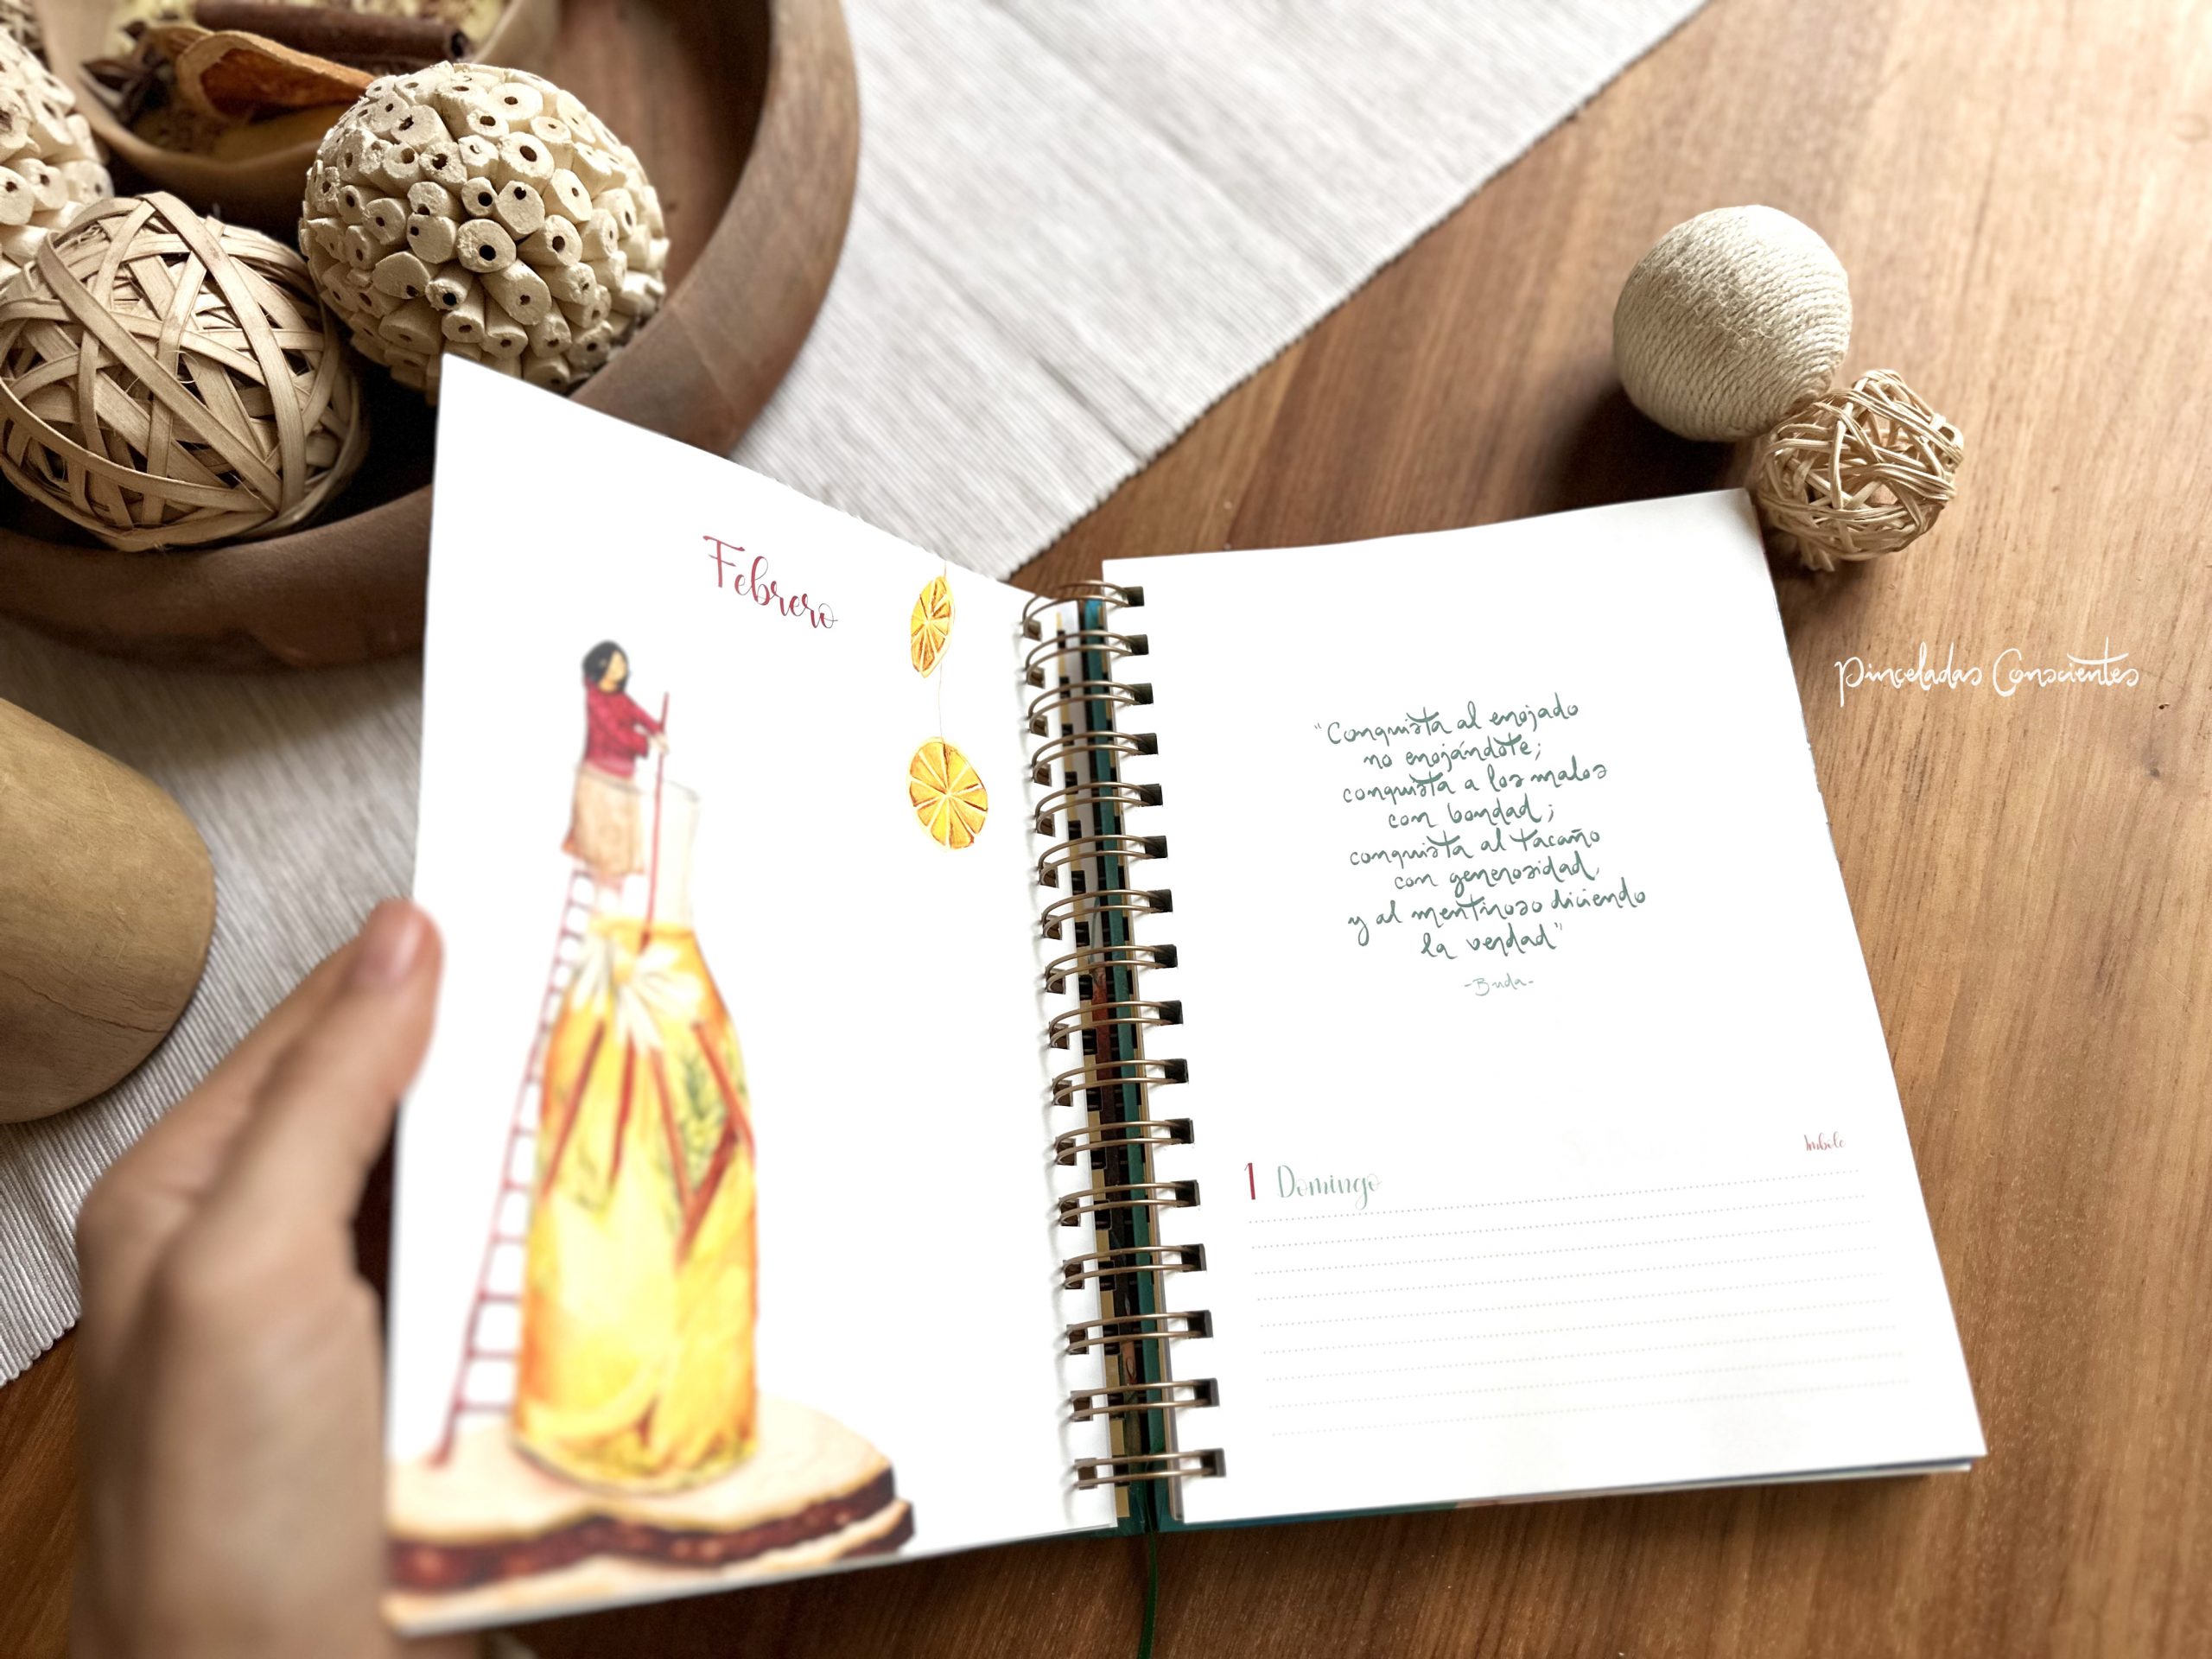 Febrero
"Conquista al enojado
no enojándote;
conquista a los malos
con bondad;
conquista al tacaño
con generosidad,
y al mentiroso diciendo
la verdad"
-Buda-
Imbolc
1 Domingo
Pinceladas Conscientes